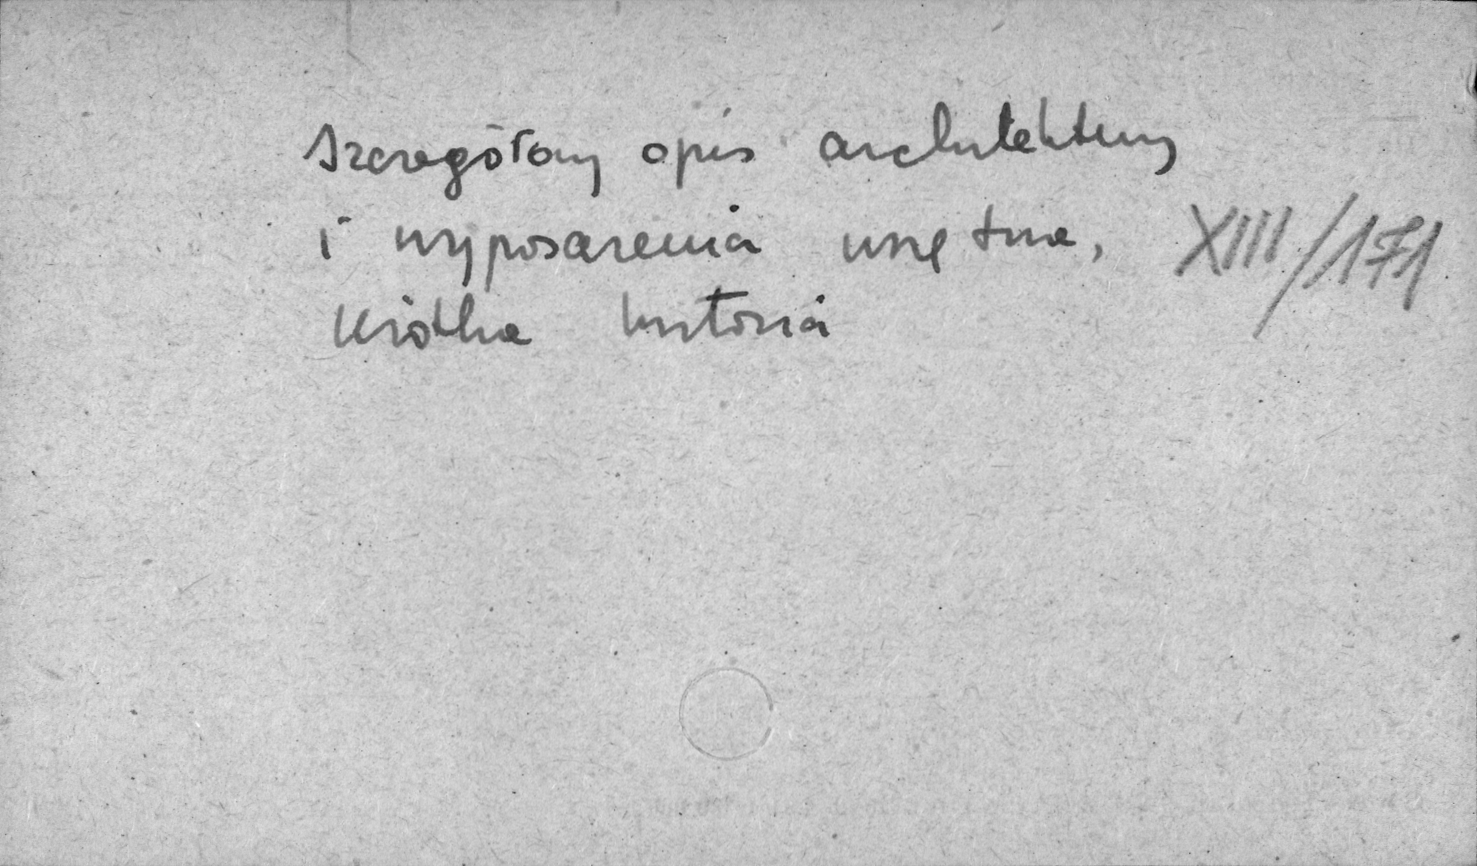 Szczegółowy opis architektury
i wyposażenia wnętrza,
krótka historia
XIII/171